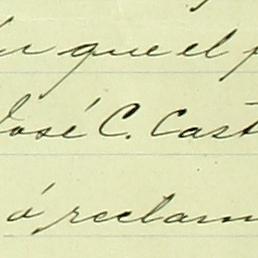 que el
José C. Cast
ó reclam